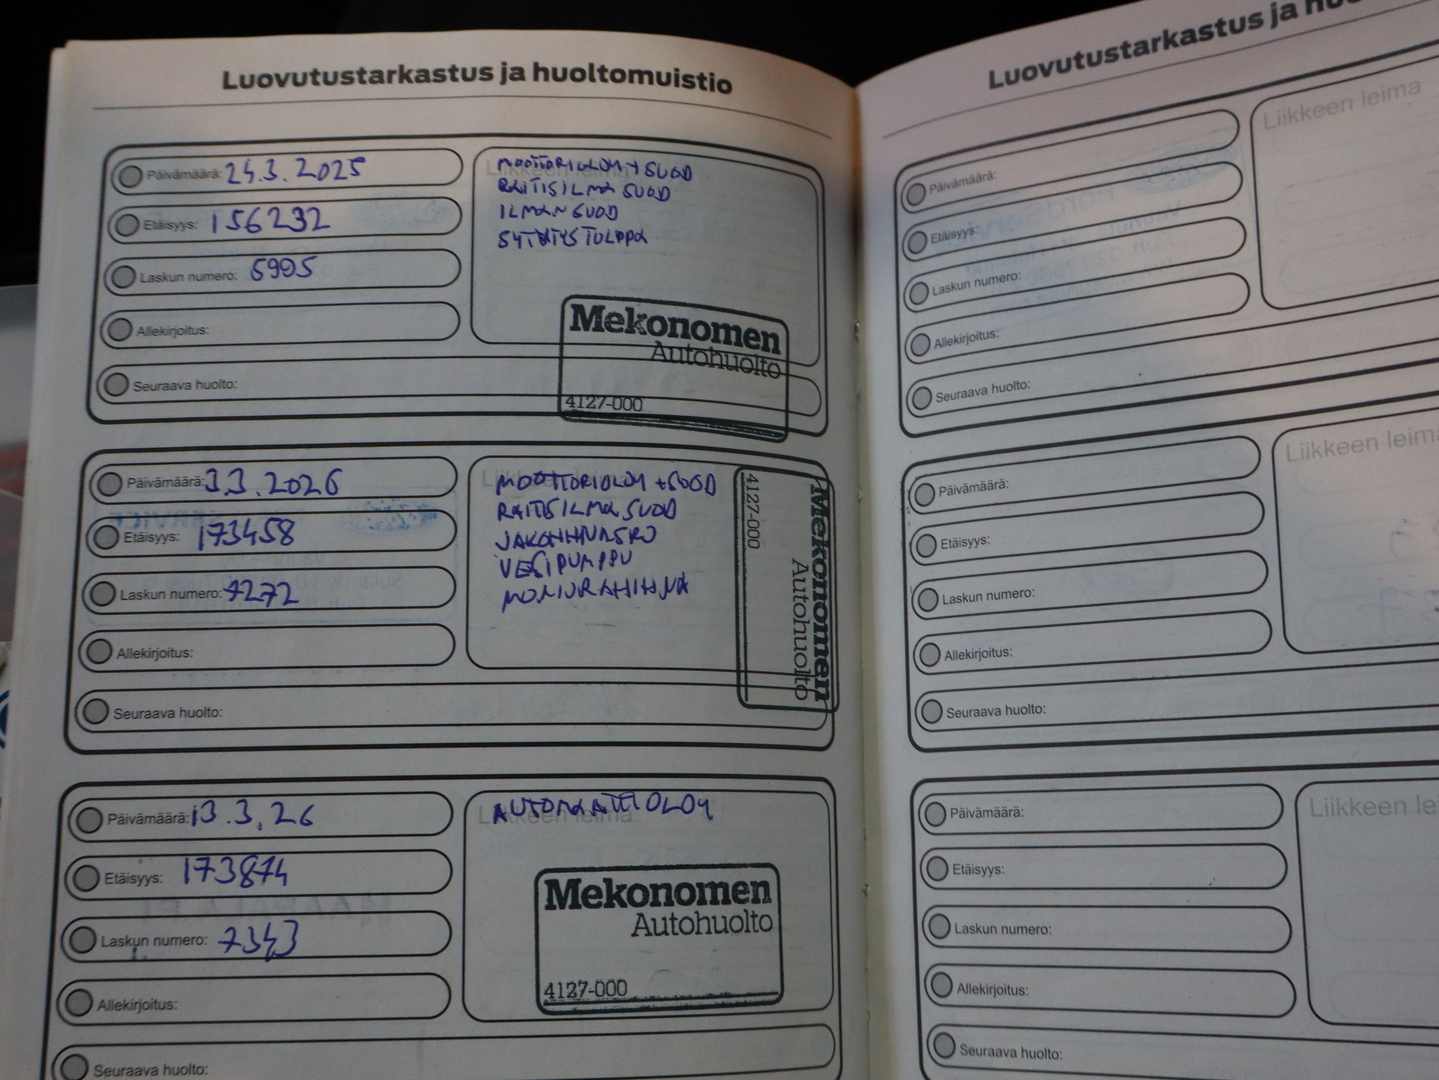 Luovutustarkastus ja huoltomuistio
Päivämäärä: 24.3.2025
Etäisyys: 156232
Laskun numero: 5905
Allekirjoitus:
Seuraava huolto:
Liikkeen leima
MOOTTORIÖLJY + SUOD
RAITISILMA SUOD
ILMAN SUOD
SYTYTYSTULPPA
Mekonomen
Autohuolto
4127-000
Päivämäärä: 3.3.2026
Etäisyys: 173458
Laskun numero: 7272
Allekirjoitus:
Seuraava huolto:
MOOTTORIÖLJY + SUOD
RAITISILMA SUOD
JAKOHIHNASRJ
VESIPUMPPU
MONIURAHIHNA
Mekonomen
Autohuolto
4127-000
Päivämäärä: 13.3.26
Etäisyys: 173874
Laskun numero: 7343
Allekirjoitus:
Seuraava huolto:
Liikkeen leima
AUTOMAATTIÖLJY
Mekonomen
Autohuolto
4127-000
Luovutustarkastus ja
Päivämäärä:
Etäisyys:
Laskun numero:
Allekirjoitus:
Seuraava huolto:
Liikkeen leima
Päivämäärä:
Etäisyys:
Laskun numero:
Allekirjoitus:
Seuraava huolto:
Liikkeen leima
Päivämäärä:
Etäisyys:
Laskun numero:
Allekirjoitus:
Seuraava huolto:
Liikkeen le